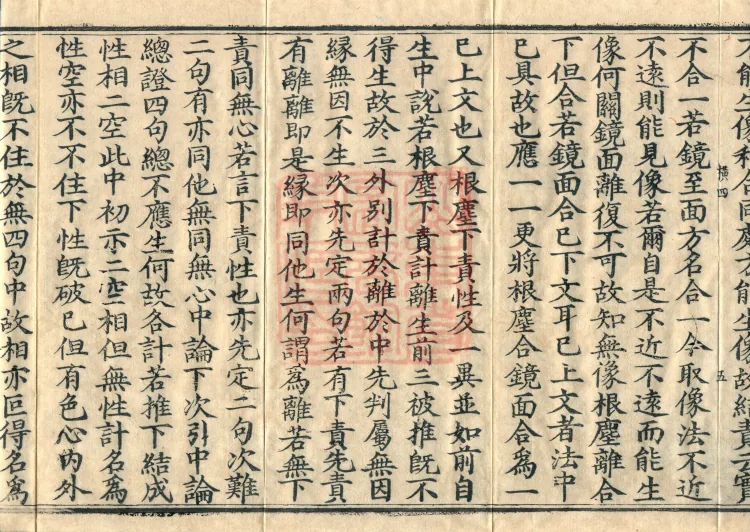 能生像
同處方能生像故結責云實
橫四　五
不合一若鏡至面方名合一今取像法不近
不遠則能見像若爾自是不近不遠而能生
像何關鏡面離復不可故知無像根塵離合
下但合若鏡面合已下文耳已上文者法中
已具故也應一一更將根塵合鏡面合爲一
已上文也又根塵下責性及一異並如前自
生中說若根塵下責計離生前三被推旣不
得生故於三外別計於離於中先判屬無因
緣無因不生次亦先定兩句若有下責先責
有離離即是緣即同他生何謂爲離若無下
責同無心若言下責性也亦先定二句次難
二句有亦同他無同無心中論下次引中論
總證四句總不應生何故各計若推下結成
性相二空此中初示二空相但無性計名爲
性空亦不不住下性旣破已但有色心內外
之相旣不住於無四句中故相亦叵得名爲